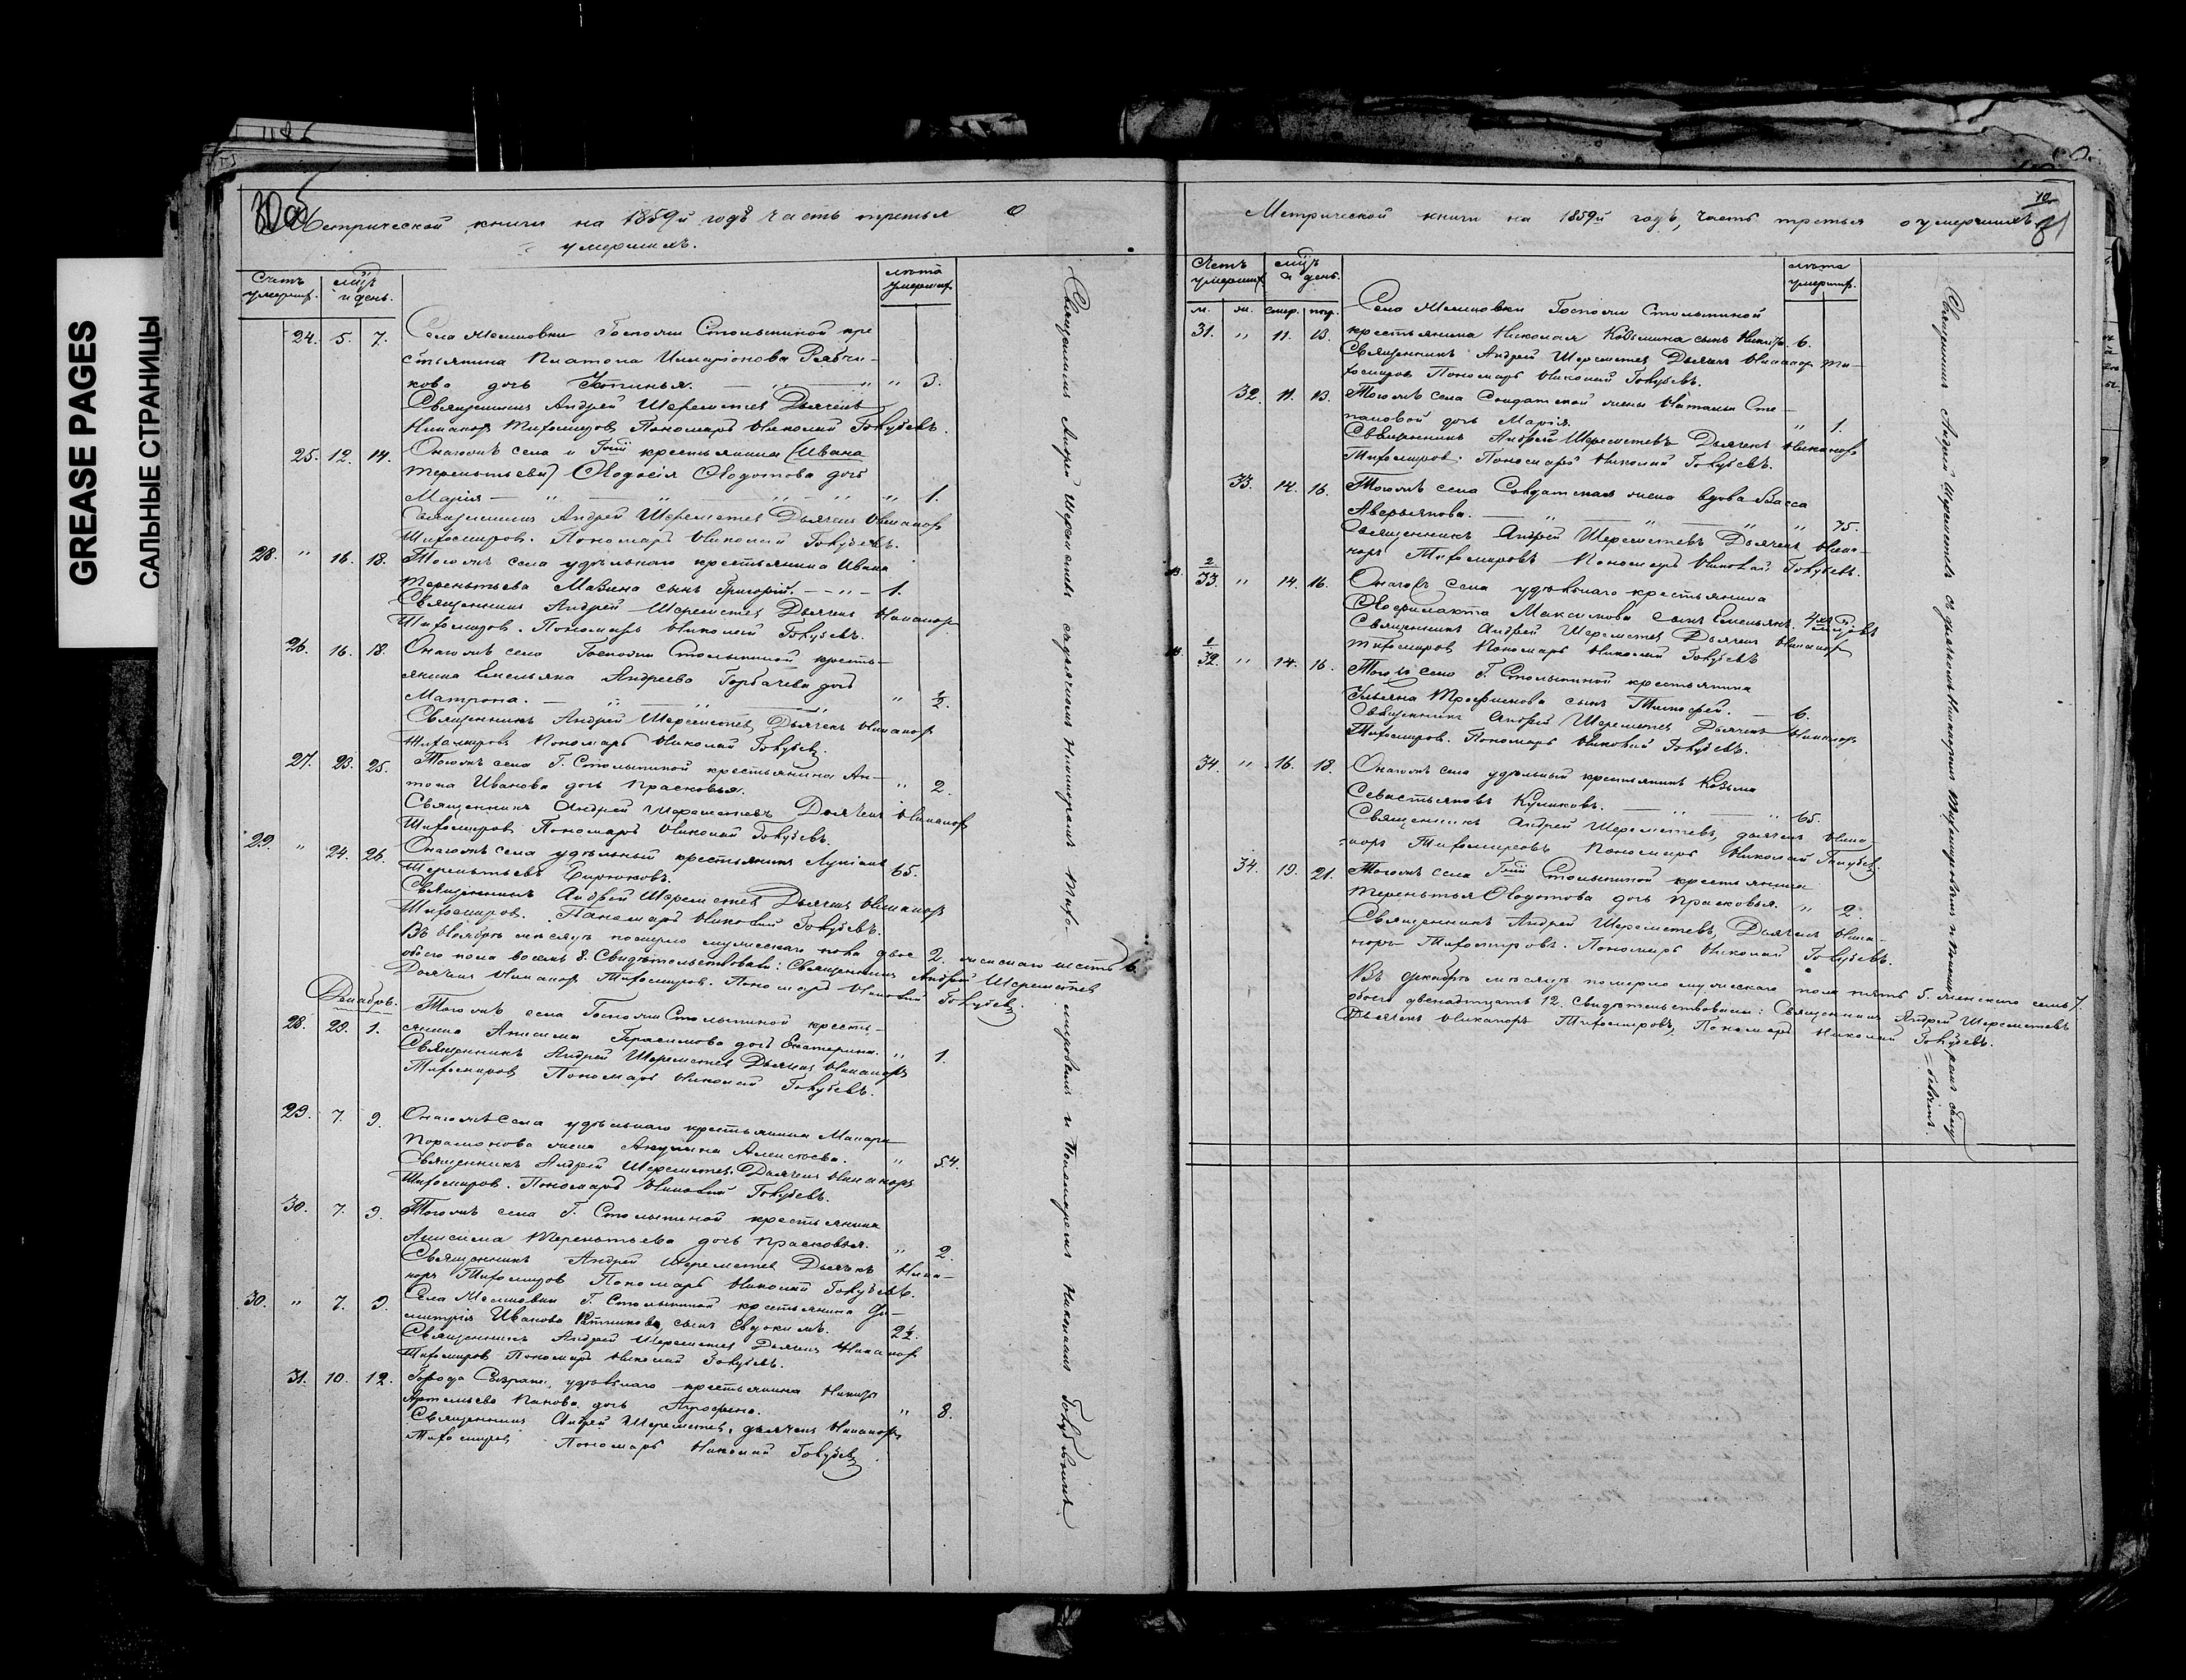 GREASE PAGES
САЛЬНЫЕ СТРАНИЦЫ
1186
Метрической книги на 1859й годъ часть третья о
умершихъ.
Счетъ умершиф. мцъ и день. лѣта умершиф.
24. 5. 7. Села Госпожи Столыпиной кре
стьянина Платона Рябчи-
кова дочь Устинья. " 3.
Священникъ Андрей Шереметев Дьячекъ
Никанор Тифомиров Пономарь Николай Голубевъ.
25. 12. 14. Онагожъ села и Гжи крестьянина (Ивана
Терентьева) Ѳедосія Ѳедотова дочь
Марія " 1.
Священникъ Андрей Шереметев Дьячекъ Никанор
Тифомиров. Пономарь Николай Голубевъ.
28. " 16. 18. Тогожъ села удѣльнаго крестьянина Ивана
Терентьева Мазина сынъ Григорій. 1.
Священникъ Андрей Шереметев Дьячекъ Никанор
Тифомиров. Пономарь Николай Голубевъ.
26. 16. 18. Онагожъ села Госпожи Столыпиной кресть-
янина Емельяна Андреева Горбачева дочь
Матрона. " 1/2.
Священникъ Андрей Шереметев Дьячекъ Никанор
Тифомировъ Пономарь Николай Голубев.
27. 23. 25. Тогожъ села Г. Столыпиной крестьянина Ан-
тона Иванова дочь Прасковья. " 2.
Священникъ Андрей Шереметевъ Дьячекъ Никанор
Тифомиров Пономарь Николай Голубевъ.
29. " 24. 26. Онагожъ села удѣльный крестьянинъ Лукіянъ
Терентьевъ Бирюковъ. 65.
Священникъ Андрей Шереметев Дьячекъ Никанор
Тифомиров. Пономарь Николай Голубевъ.
Въ Ноябрѣ мѣсяцѣ померло мужескаго пола двое 2. женскаго шесть 6.
обоего пола восемь 8. Свидѣтельствовали: Священникъ Андрей Шереметев
Дьячекъ Никанор Тифомиров. Пономарь Николай Голубев.
Декабрь.
28. 29. 1. Тогожъ села Госпожи Столыпиной кресть-
янина Анисима Герасимова дочь Екатерина. " 1.
Священникъ Андрей Шереметев Дьячекъ Никаноръ
Тифомиров Пономарь Николай Голубевъ.
29. 7. 9. Онагожъ села удѣльнаго крестьянина Макара
Порамонова жена Акулина Алексѣева. " 54.
Священникъ Андрей Шереметев. Дьячекъ Никаноръ
Тифомиров. Пономарь Николай Голубевъ.
30. 7. 9. Тогожъ села Г. Столыпиной крестьянина
Анисима Терентьева дочь Прасковья. " 2.
Священникъ Андрей Шереметев Дьячекъ Ника-
норъ Тифомиров Пономарь Николай Голубевъ.
30. " 7. 9. Села Г. Столыпиной крестьянина Ди-
митрія Иванова сынъ Евдокимъ. 2½.
Священникъ Андрей Шереметев Дьячекъ Никанор
Тифомиров Пономарь Николай Голубевъ.
31. 10. 12. Города Сызрани, удѣльнаго крестьянина Никиты
Артемьева Панова дочь Агрофена. " 8.
Священникъ Андрей Шереметев, дьячекъ Никаноръ
Тифомиров Пономарь Николай Голубев
Священникъ Андрей Шереметевъ съ дьячкомъ Никаноромъ Тифо-
мировымъ и Пономаремъ Николаемъ Голубевымъ
Метрической книги на 1859й годъ, часть третья о умершихъ.
10.
Счетъ умершиф. мцъ и день. лѣта умершиф.
м. ж. смер. пог.
31. " 11. 13. Села Госпожи Столыпиной
крестьянина Николая Козьмина сынъ Никита 6.
Священникъ Андрей Шереметев Дьячекъ Никанор Ти-
фомиров Пономарь Николай Голубевъ.
32. 11. 13. Тогожъ села Солдатской жены Натальи Сте-
пановой дочь Марія. " 1.
Священникъ Андрей Шереметевъ Дьячекъ Никанор
Тифомиров. Пономарь Николай Голубевъ.
33. 14. 16. Тогожъ села Солдатская жена вдова Васса
Аверьянова. " 75.
Священникъ Андрей Шереметевъ Дьячекъ Ника-
норъ Тифомировъ Пономарь Николай Голубевъ.
2/33. " 14. 16. Онагожъ села удѣльнаго крестьянина
Ѳеофилакта Максимова сынъ Емельянъ.
Священникъ Андрей Шереметев Дьячекъ Никанор
Тифомиров Пономарь Николай Голубевъ
1/32. " 14. 16. Тогожъ села Г. Столыпиной крестьянина
Ульяна Трофимова сынъ Тимофей. 6.
Священникъ Андрей Шереметев Дьячекъ Никанор
Тифомиров. Пономарь Николай Голубевъ.
34. " 16. 18. Онагожъ села удѣльный крестьянинъ Козьма
Севастьяновъ Куликовъ. 65.
Священникъ Андрей Шереметевъ, дьячекъ Ника-
норъ Тифомировъ Пономарь Николай Голубев.
34. 19. 21. Тогожъ села Гжи Столыпиной крестьянина
Терентья Ѳедотова дочь Прасковья. " 2.
Священникъ Андрей Шереметевъ, Дьячекъ Ника-
норъ Тифомировъ. Пономарь Николай Голубевъ.
Въ декабрѣ мѣсяцѣ померло мужескаго пола пять 5. женскаго семь 7.
обоего двенадцать 12. Свидѣтельствовали: Священникъ Андрей Шереметевъ
Дьячекъ Никаноръ Тифомировъ, Пономарь Николай Голубевъ.
Священникъ Андрей Шереметевъ съ дьячкомъ Никаноромъ Тифомировымъ и